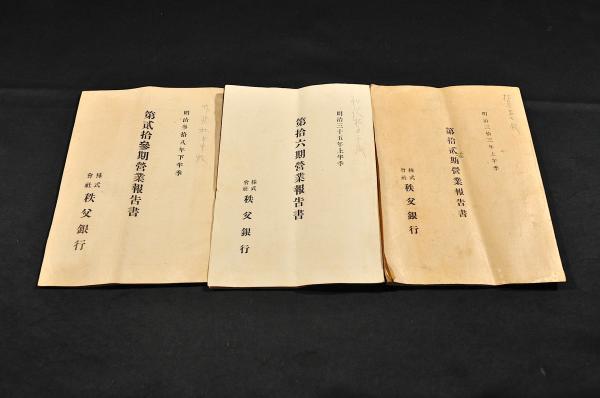 明治三拾三年上半季
第拾弐期營業報告書
株式會社 秩父銀行
明治三十五年上半季
第拾六期營業報告書
株式會社 秩父銀行
明治参拾八年下半季
第貳拾參期營業報告書
株式會社 秩父銀行